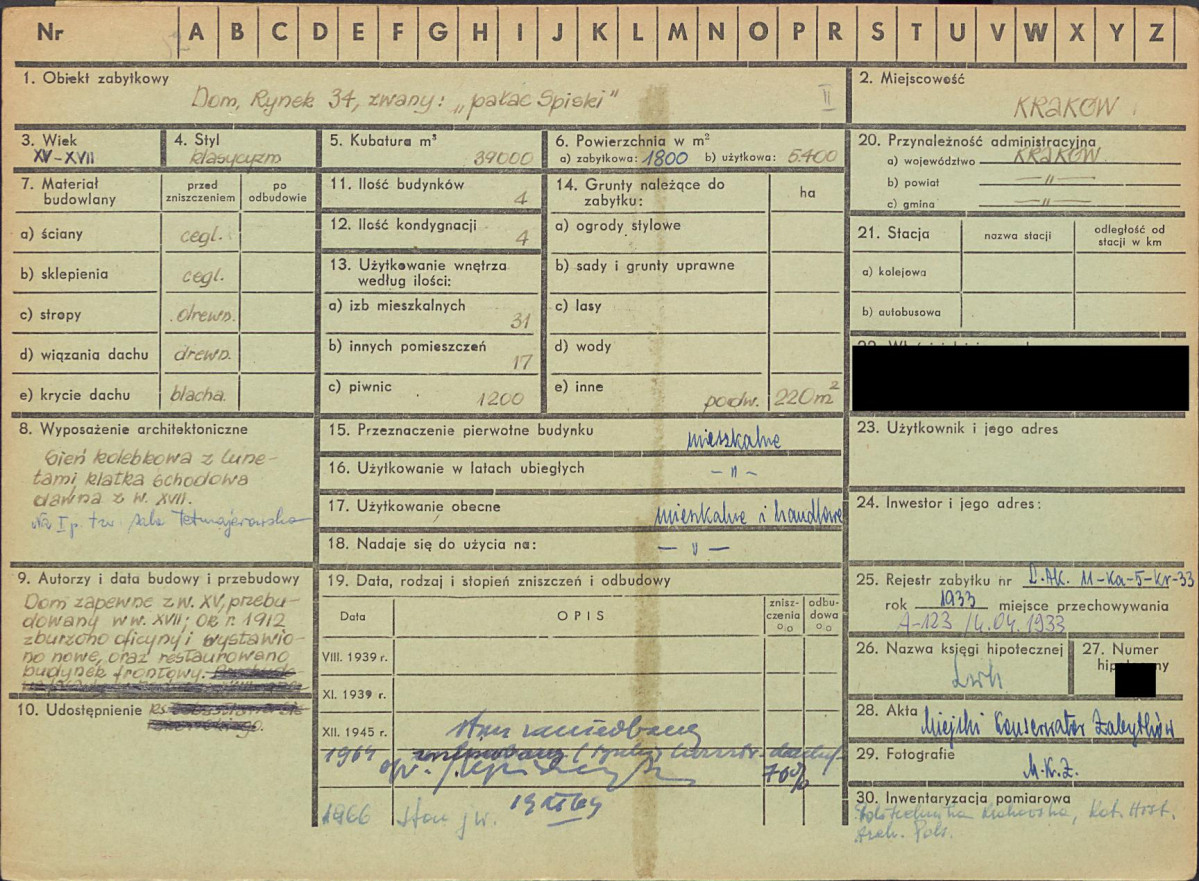 Nr A B C D E F G H I J K L M N O P R S T U V W X Y Z
1. Obiekt zabytkowy
Dom, Rynek 34, zwany: „pałac Spiski"
II
2. Miejscowość
KRAKÓW
3. Wiek
XV-XVII
4. Styl
klasycyzm
5. Kubatura m³
39000
6. Powierzchnia w m²
a) zabytkowa: 1800 b) użytkowa: 5.400
7. Materiał budowlany
przed zniszczeniem
po odbudowie
a) ściany cegl.
b) sklepienia cegl.
c) stropy drewn.
d) wiązania dachu drewn.
e) krycie dachu blacha.
8. Wyposażenie architektoniczne
Sień kolebkowa z lune-
tami, klatka schodowa
dawna z w. XVII.
Na I p. tzw. sala Tetmajerowska
9. Autorzy i data budowy i przebudowy
Dom zapewne z w. XV, przebu-
dowany w w. XVII; ok r. 1912
zburzono oficyny i wystawio-
no nowe, oraz restaurowano
budynek frontowy.
10. Udostępnienie
11. Ilość budynków
4
12. Ilość kondygnacji
4
13. Użytkowanie wnętrza
według ilości:
a) izb mieszkalnych
31
b) innych pomieszczeń
17
c) piwnic
1200
14. Grunty należące do
zabytku:
ha
a) ogrody stylowe
b) sady i grunty uprawne
c) lasy
d) wody
e) inne podw. 220m²
15. Przeznaczenie pierwotne budynku
mieszkalne
16. Użytkowanie w latach ubiegłych
- „ -
17. Użytkowanie obecne
mieszkalne i handlowe
18. Nadaje się do użycia na:
- „ -
19. Data, rodzaj i stopień zniszczeń i odbudowy
Data
OPIS
znisz-
czenia
%
odbu-
dowa
%
VIII. 1939 r.
XI. 1939 r.
XII. 1945 r.
stan zaniedbany
1964
70%
1966 Stan jw.
20. Przynależność administracyjna
a) województwo KRAKÓW
b) powiat - „ -
c) gmina - „ -
21. Stacja
nazwa stacji
odległość od
stacji w km
a) kolejowa
b) autobusowa
23. Użytkownik i jego adres
24. Inwestor i jego adres:
25. Rejestr zabytku nr L.Ak. 11-Ka-5-Kr-33
rok 1933 miejsce przechowywania
A-123 /4.04.1933
26. Nazwa księgi hipotecznej
Lwh
27. Numer
28. Akta
Miejski Konserwator Zabytków
29. Fotografie
M.K.Z.
30. Inwentaryzacja pomiarowa
Politechnika Krakowska, Kat. Hist.
Arch. Pols.